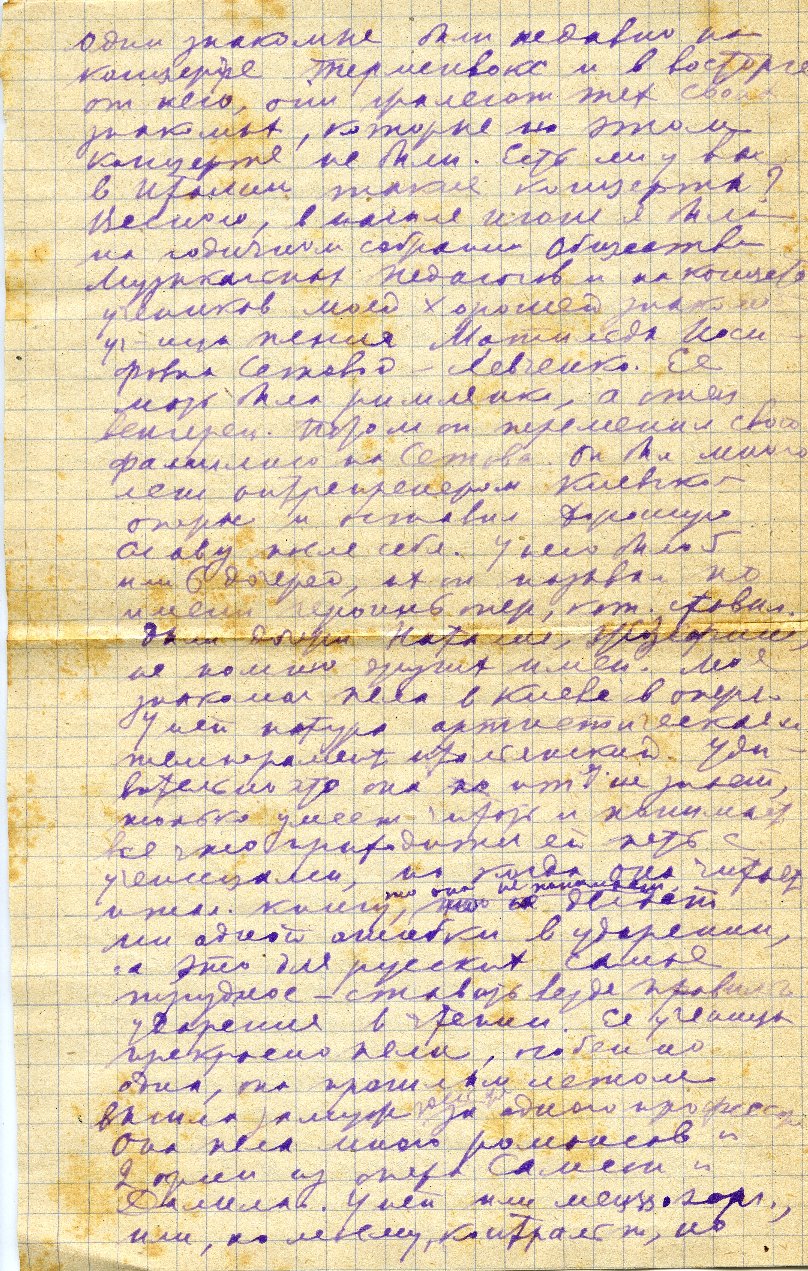 одни знакомые были недавно на
концерте Терменвокс и в восторге
от него, они тех своих
знакомых, которые на этом
концерте не были. Есть ли у вас
в Италии такие концерты?
Весною, в начале я была
на годичном собрании Общества
Музыкальных Педагогов и на концерте
учеников моей хорошей знакомой
уч-ица пения Матильда Иоси-
фовна Сетова-Левченко. Ее
мать была римлянка, а отец
венгерец. Потом он переменил свою
фамилию на Сетова. Он был много
лет антрепренером Киевской
оперы и оставил хорошую
славу после себя. У него было 5
или 6 дочерей, их он называл по
имени героинь опер, кот. ставил.
Была дочери Наталия,
не помню других имен. Моя
знакомая пела в Киеве в опере.
У ней натура артистическая и
темперамент итальянский. Уди-
вительно что она по ит. не знает,
только умеет читать и понимает
все что приходится ей петь с
ученицами, но когда она читает
итал. книгу, что она не понимает, не делает
ни одной ошибки в ударении,
а это для русских самое
трудное – ставить везде правильно
ударения в чтении. Ее ученицы
прекрасно пели, особенно
одна, она прошлым летом
вышла замуж за одного профессора
Она пела много романсов и
2 арии из оперы Самсон и
Далила. У ней или меццо-сопр.,
или, по моему, контральто, но